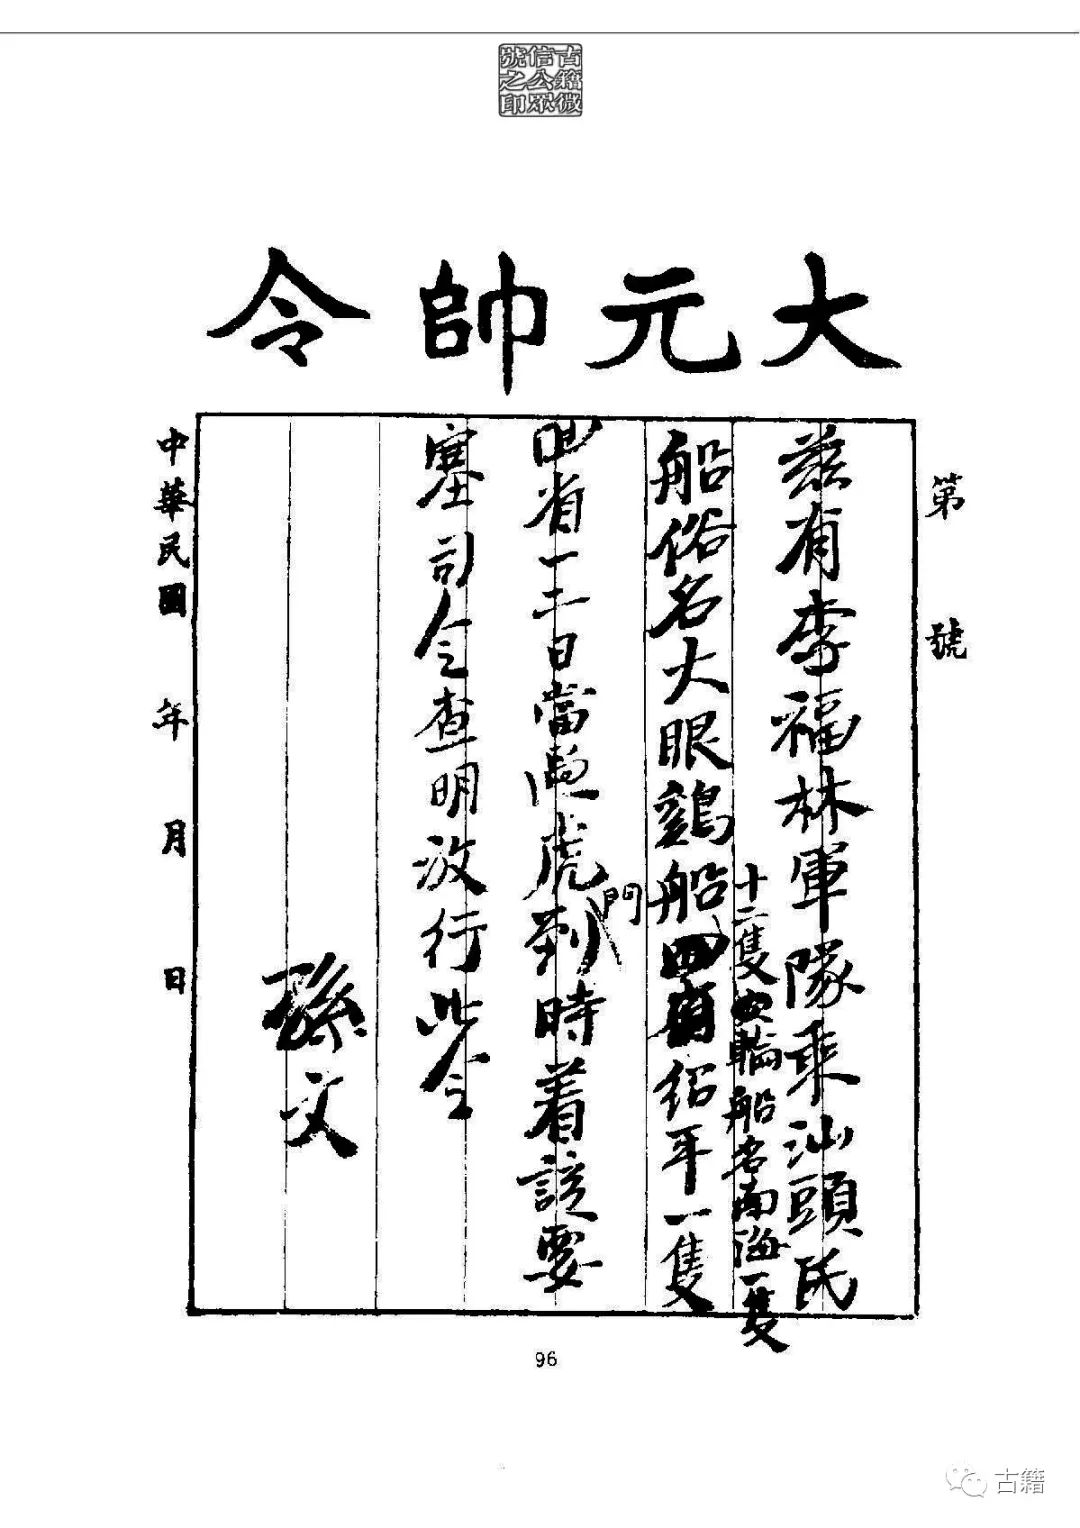 古籍微
信公眾
號之印
大元帥令
第 號
茲有李福林軍隊乘汕頭民
十二隻 輪船名南海一隻
船俗名大眼鷄船 紹平一隻
囘省一二日當過虎門到時着該要
塞司令查明放行此令
孫文
中華民國 年 月 日
96
古籍